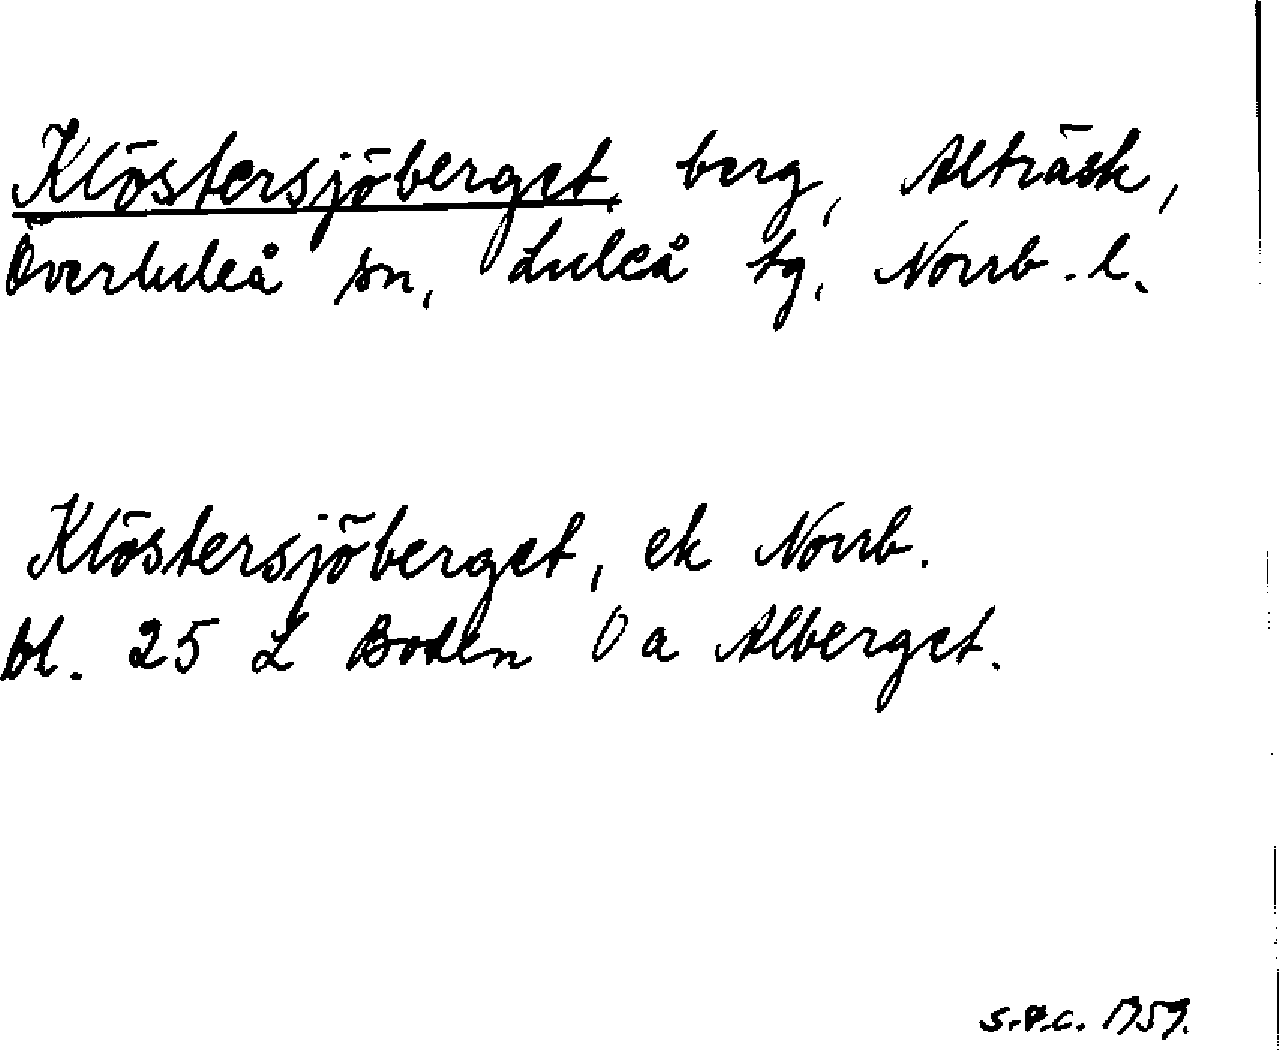 Klöstersjöberget, berg, Alträsk,
Överluleå sn, Luleå tg, Norrb. l.
Klöstersjöberget, ek Norrb.
bl. 25 L Boden O a Alberget.
1959.